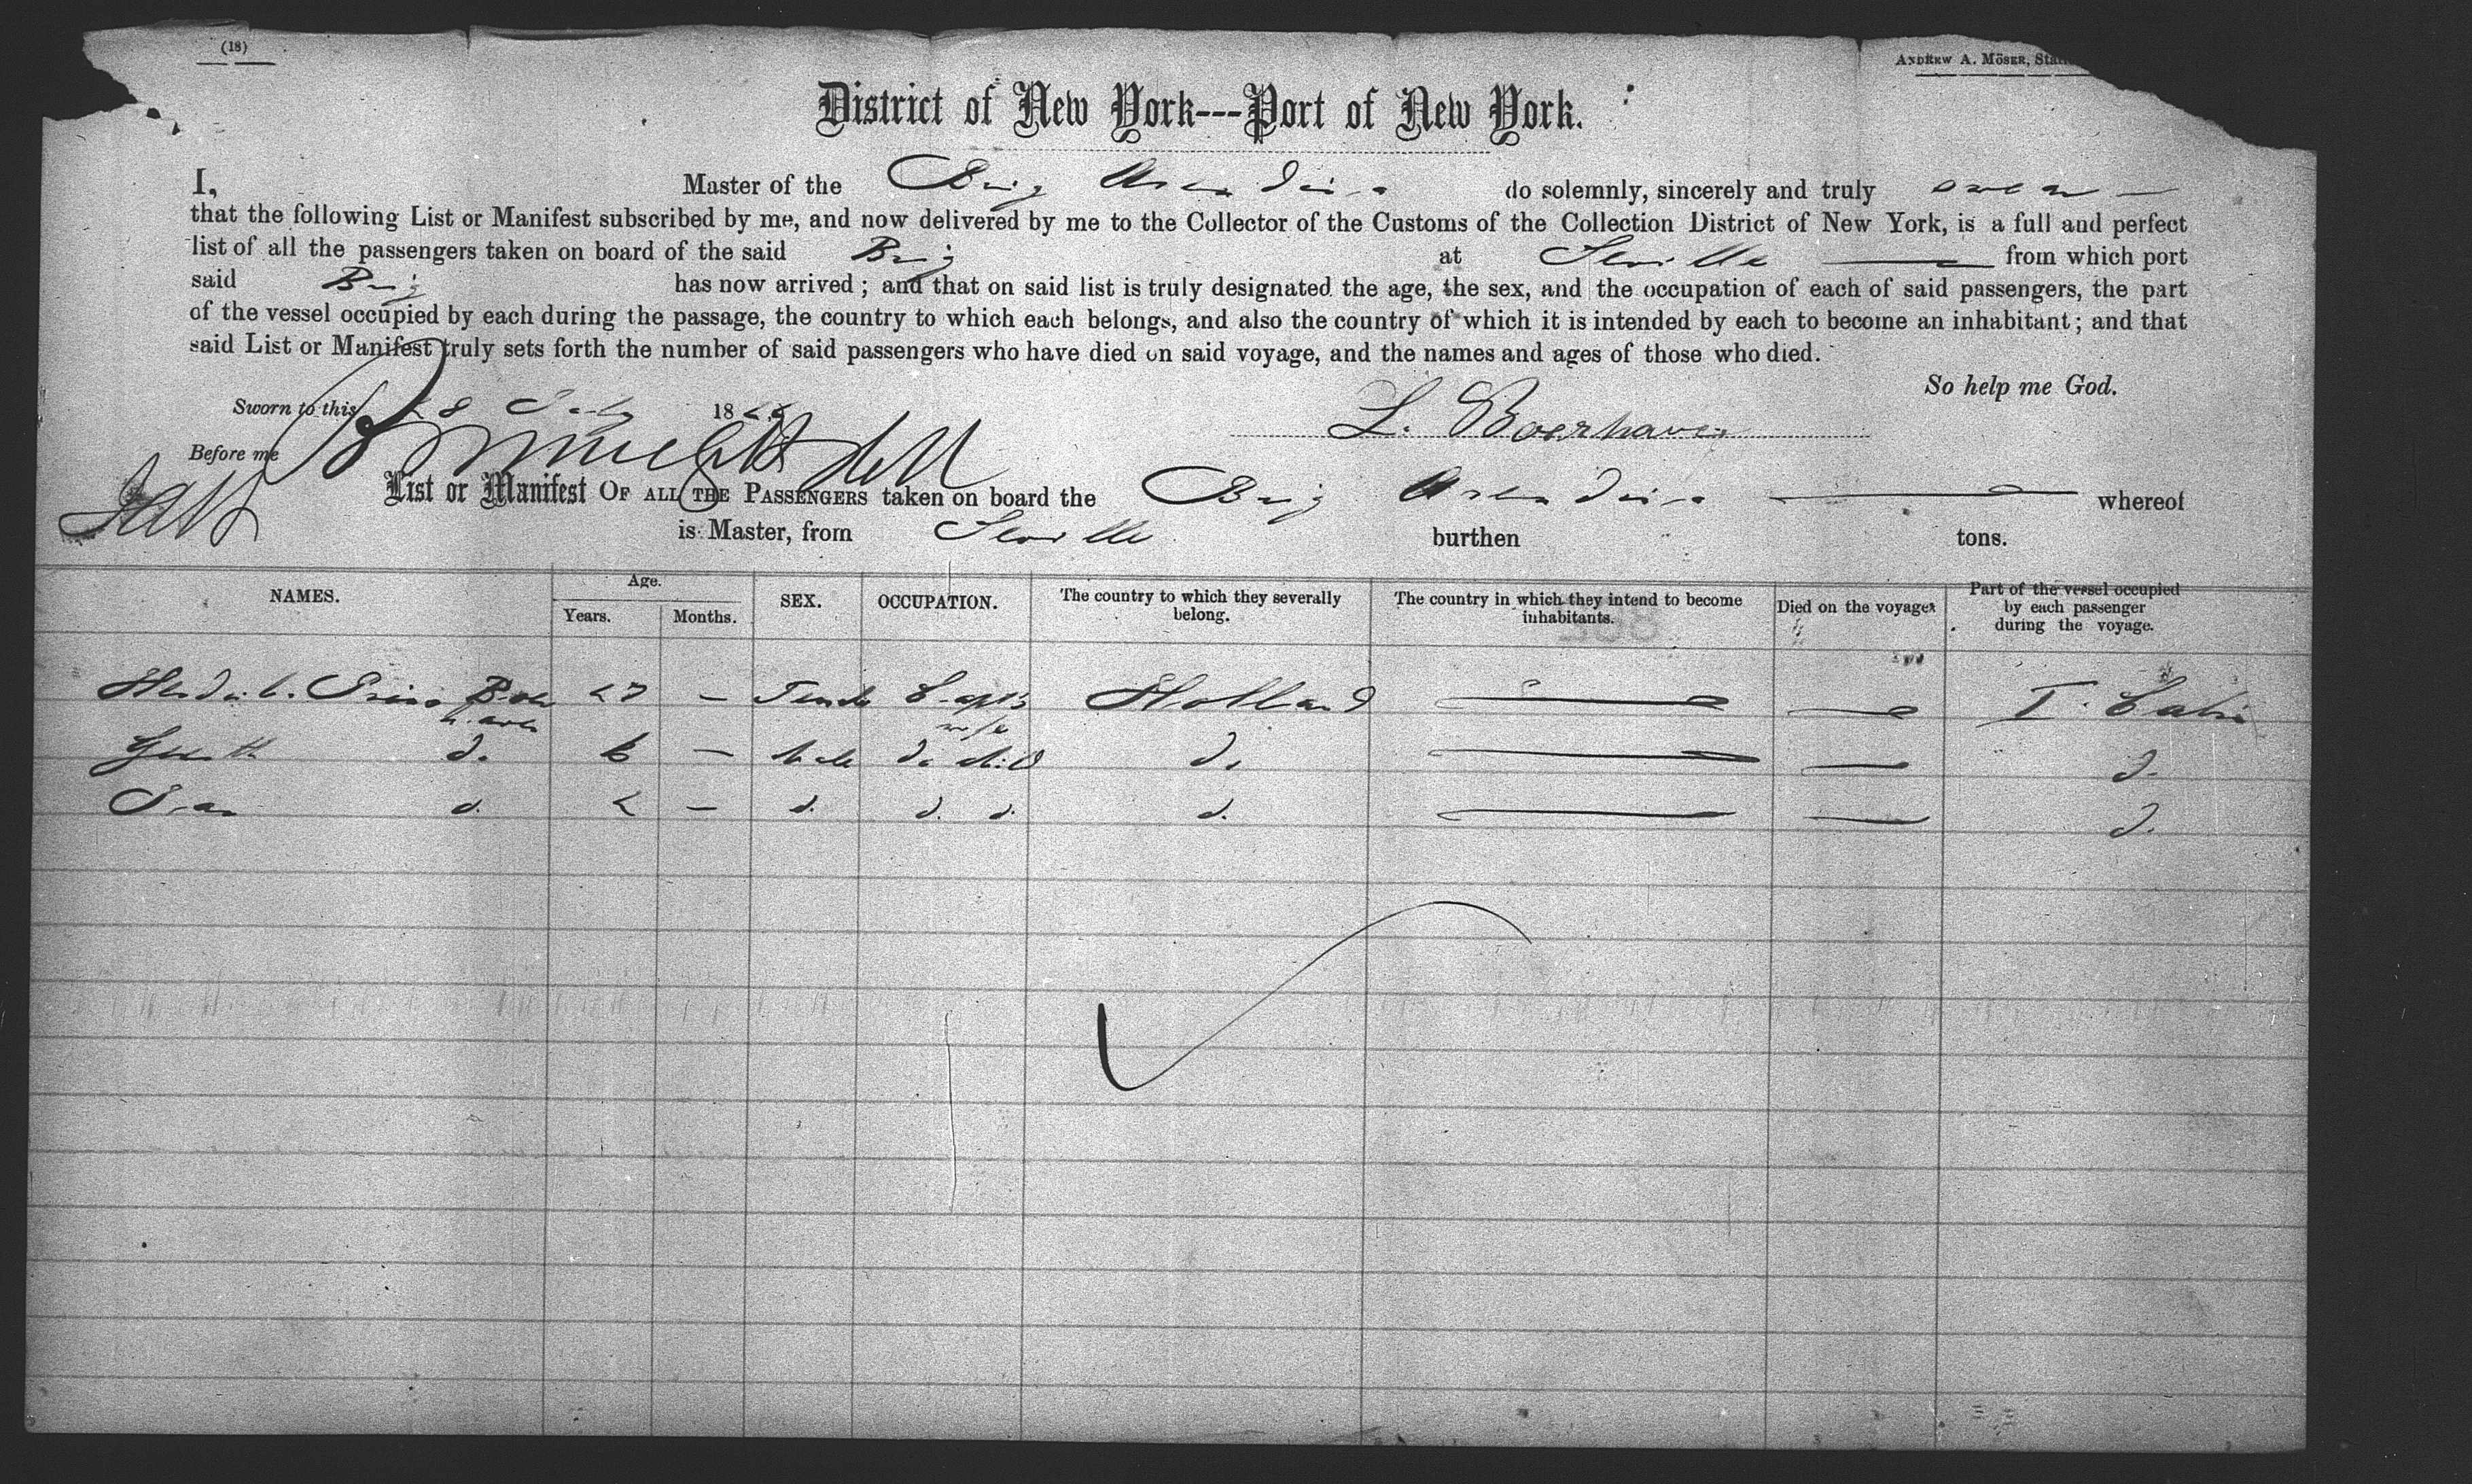 (18)
ANDREW A. MÖSER, Stat
District of New York---Port of New York.
I, Master of the Brig do solemnly, sincerely and truly swear
that the following List or Manifest subscribed by me, and now delivered by me to the Collector of the Customs of the Collection District of New York, is a full and perfect
list of all the passengers taken on board of the said Brig at Seville from which port
said Brig has now arrived; and that on said list is truly designated the age, the sex, and the occupation of each of said passengers, the part
of the vessel occupied by each during the passage, the country to which each belongs, and also the country of which it is intended by each to become an inhabitant; and that
said List or Manifest truly sets forth the number of said passengers who have died on said voyage, and the names and ages of those who died.
So help me God.
Sworn to this 28 July 18
L. Boerhave
Before me
List or Manifest OF ALL THE PASSENGERS taken on board the Brig whereof
is Master, from Seville burthen tons.
NAMES. Age. Years. Months. SEX. OCCUPATION. The country to which they severally belong. The country in which they intend to become inhabitants. Died on the voyage. Part of the vessel occupied by each passenger during the voyage.
27 – Female Capt's wife Holland — — I. Cabin
do 6 – Male do child do — — do
do – do do do do — — do